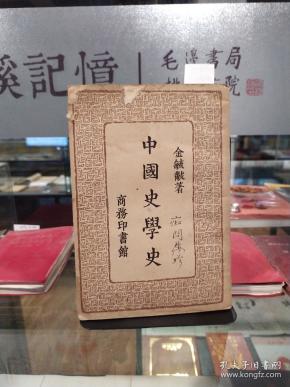 溪記憶
毛邊書局
金毓黻著
中國史學史
商務印書館
孔夫子旧书网